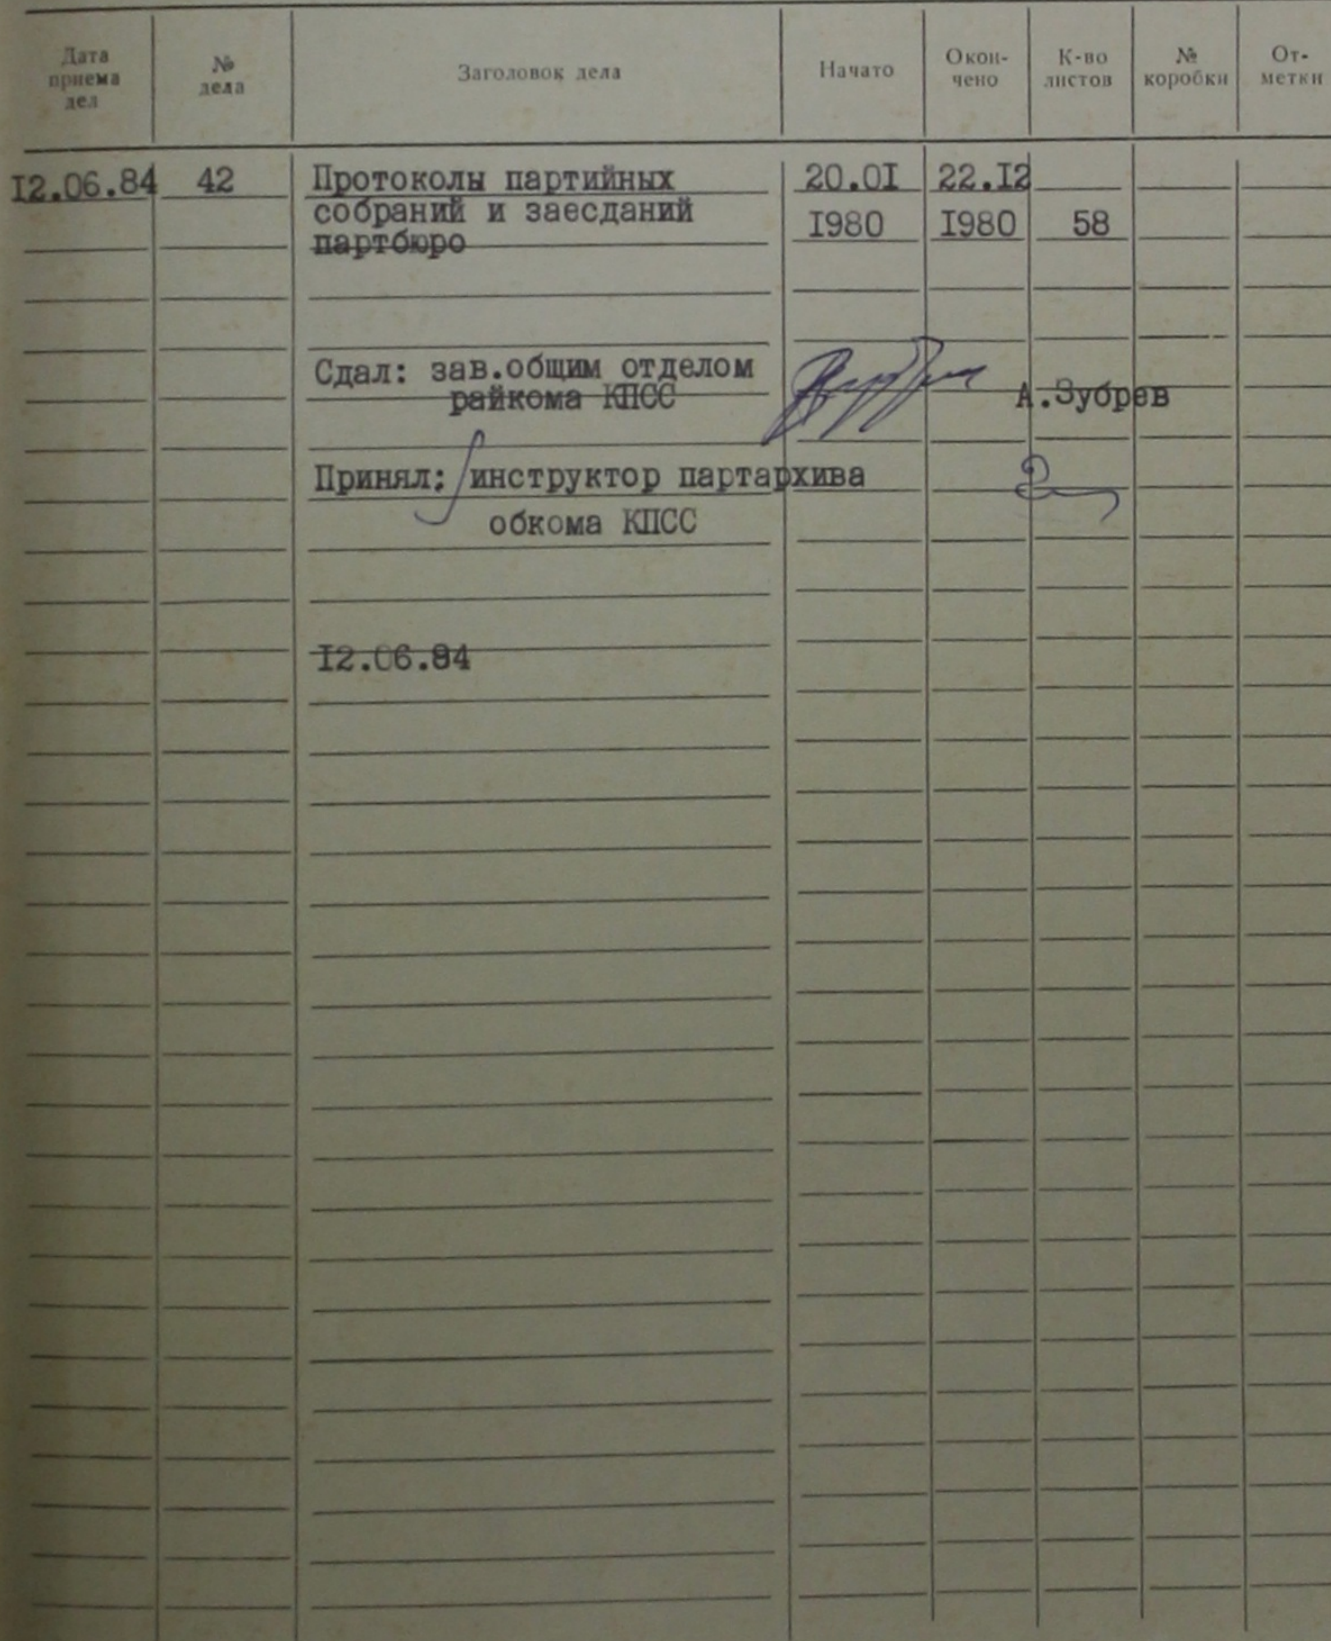 Дата приема дел № дела Заголовок дела Начато Окон- чено К-во листов № коробки От- метки
I2.06.84 42 Протоколы партийных 20.0I 22.I2
собраний и заесданий I980 I980 58
партбюро
Сдал: зав.общим отделом
райкома КПСС А.Зубрев
Принял: инструктор партархива
обкома КПСС
I2.06.84